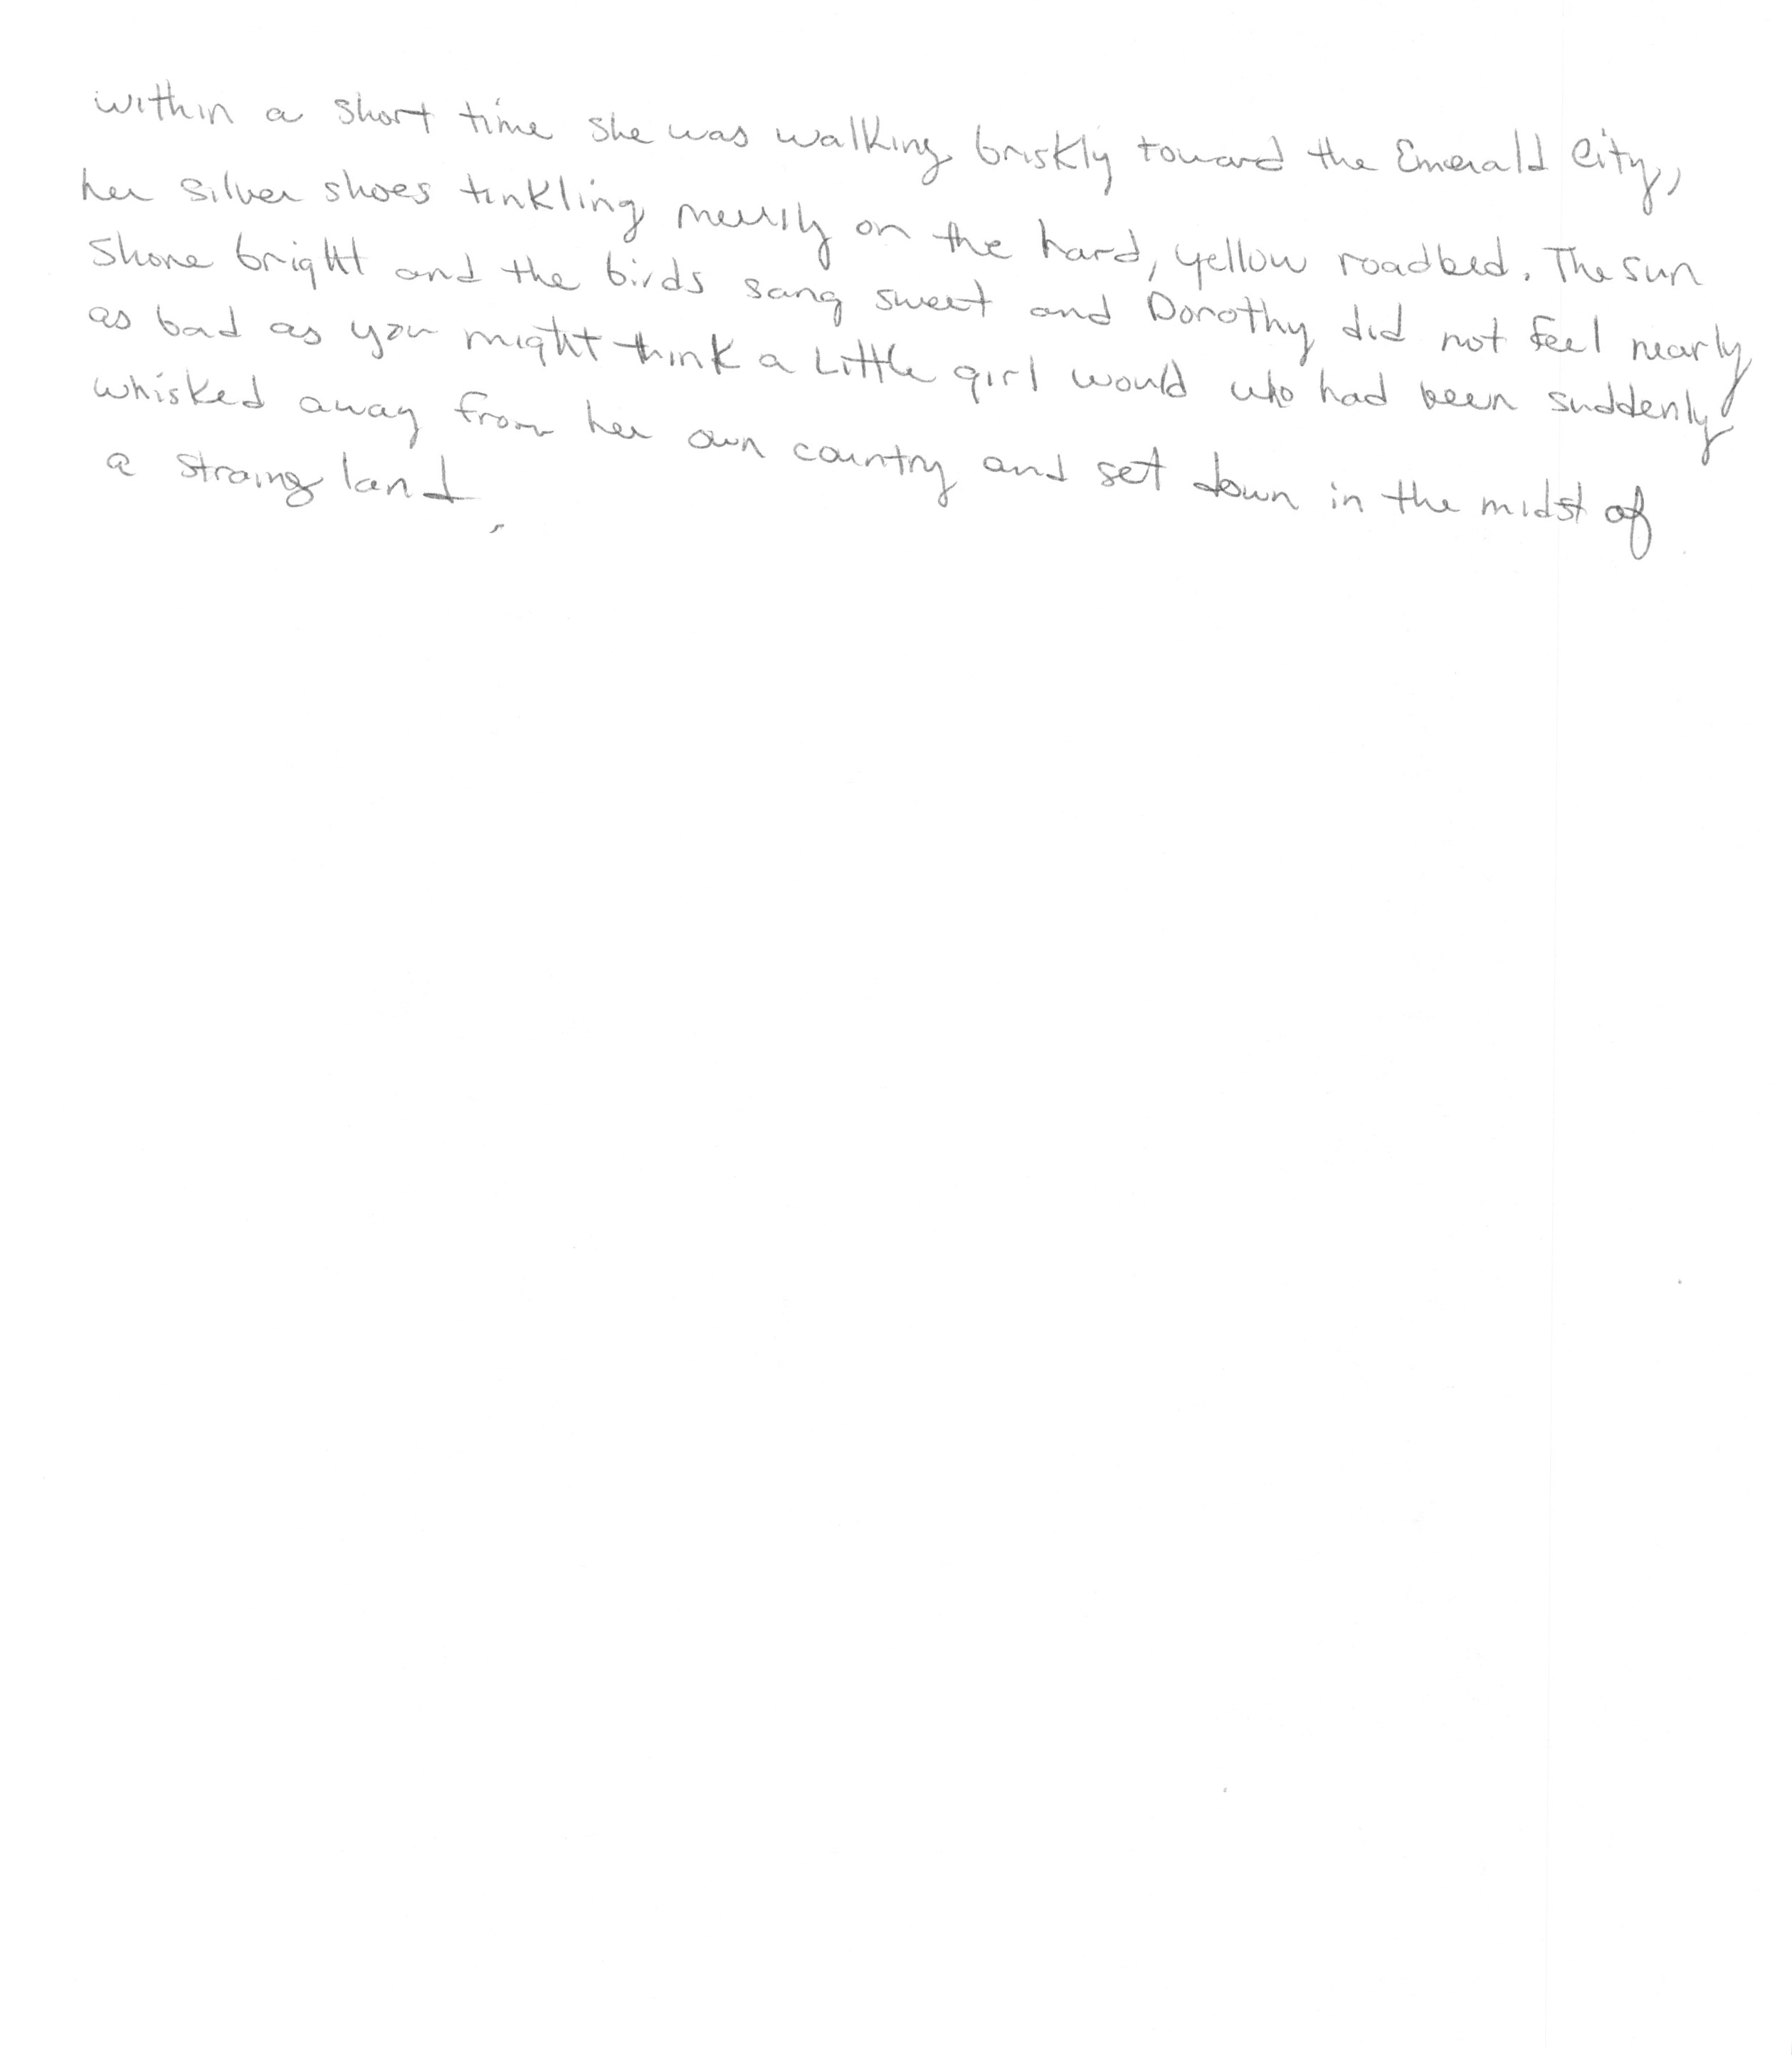 within a short time she was walking briskly toward the Emerald City,
her silver shoes tinkling merrily on the hard, yellow roadbed. The sun
shone bright and the birds sang sweet and Dorothy did not feel nearly
as bad as you might think a little girl would who had been suddenly
whisked away from her own country and set down in the midst of
a straing land.